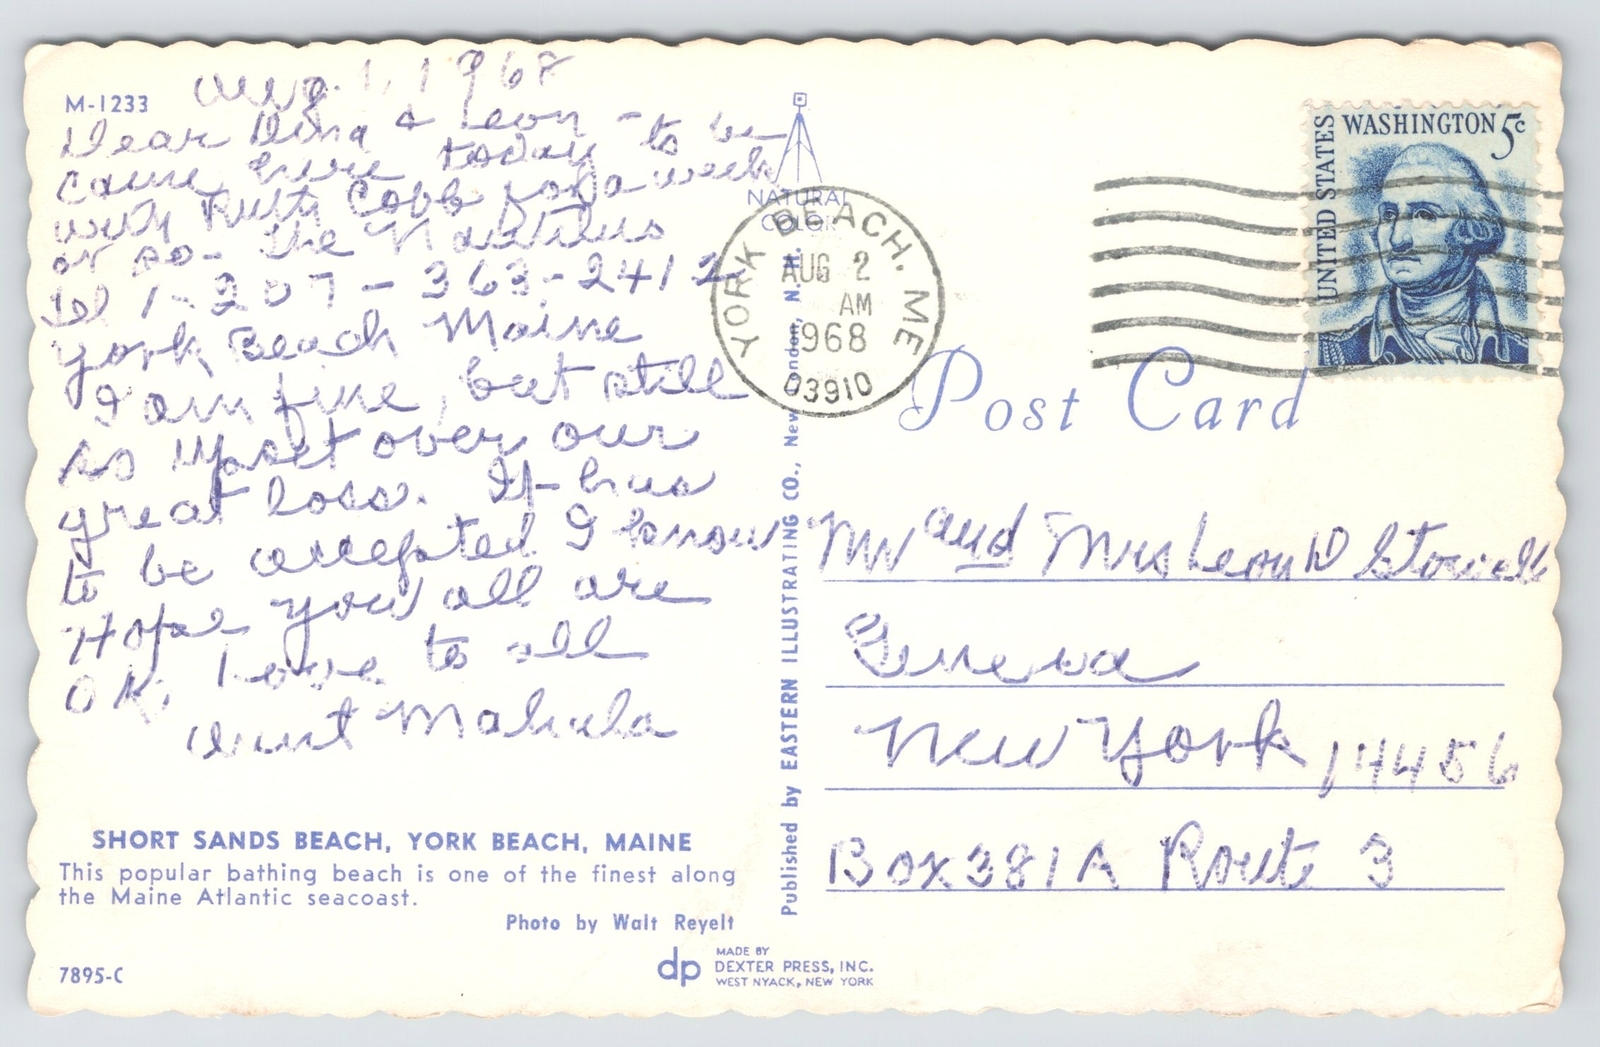 M-1233
Aug. 1, 1968
Dear Dina & Leon - to be
came here today
with Ruth Cobb for a week
or so - the Nautilus
Tel 1-207-363-2412
York Beach Maine
I am fine, but still
so upset over our
great loss. It has
to be accepted I know
Hope you all are
OK. Love to all
Aunt Mahala
SHORT SANDS BEACH, YORK BEACH, MAINE
This popular bathing beach is one of the finest along
the Maine Atlantic seacoast.
Photo by Walt Reyelt
7895-C
dp
MADE BY
DEXTER PRESS, INC.
WEST NYACK, NEW YORK
NATURAL
COLOR
Published by EASTERN ILLUSTRATING CO., New London, N.H.
YORK BEACH, ME
AUG 2
AM
1968
03910
UNITED STATES
WASHINGTON 5c
Post Card
Mr and Mrs Leon D Stowell
Geneva
New York 14456
Box 381A Route 3